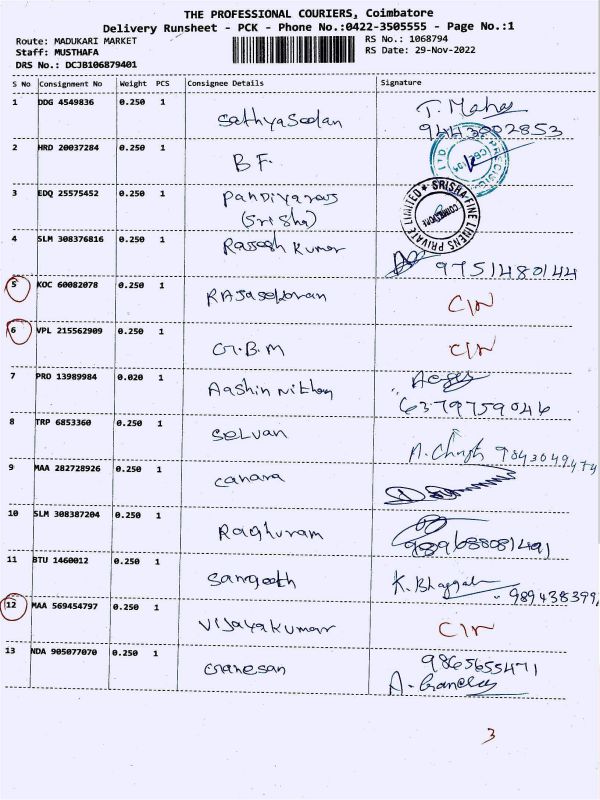 THE PROFESSIONAL COURIERS, Coimbatore
Delivery Runsheet - PCK - Phone No.:0422-3505555 - Page No.:1
Route: MADUKARI MARKET RS No.: 1068794
Staff: MUSTHAFA RS Date: 29-Nov-2022
DRS No.: DCJB106879401
S No Consignment No Weight PCS Consignee Details Signature
1 DDG 4549836 0.250 1 Sathyaseelan T. Mahes
9443002853
2 HRD 20037284 0.250 1 B F.
3 EDQ 25575452 0.250 1 Pandiyaraj
(Srisha)
SRISHA FINE LINENS PRIVATE LIMITED
4 SLM 308376816 0.250 1 Rajesh Kumar
9751480144
5 KOC 60082078 0.250 1 RAJasekaran C/N
6 VPL 215562909 0.250 1 G.B.M C/N
7 PRO 13989984 0.020 1 Aashin Nithan
6379759046
8 TRP 6853360 0.250 1 Selvan 9843049474
9 MAA 282728926 0.250 1 Canara
10 SLM 308387204 0.250 1 Raghuram
11 BTU 1460012 0.250 1 Sangeeth K.
989438399
12 MAA 569454797 0.250 1 Vijayakumar C/N
13 NDA 905077070 0.250 1 Ganesan 9865655471
A.
3